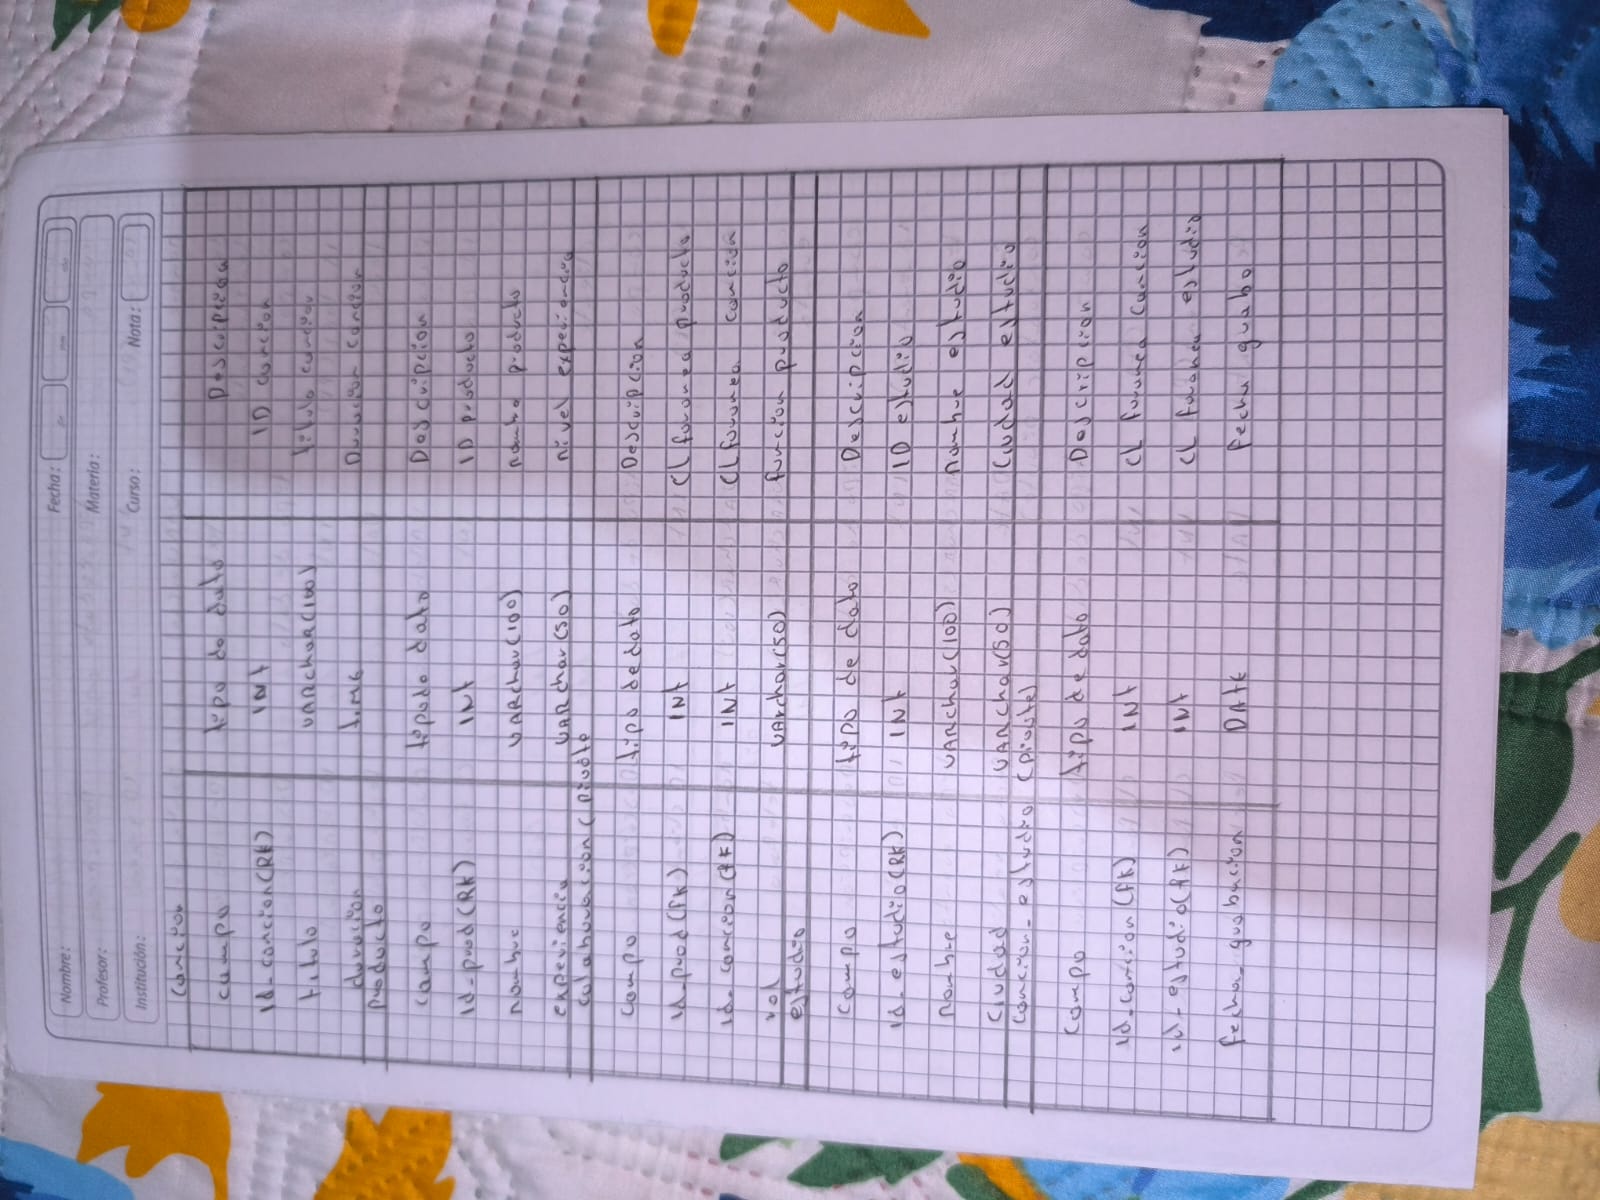 Nombre: Fecha:
Profesor: Materia:
Institución: Curso: Nota:
Cancion
campo tipo de dato Descripcion
id_cancion(PK) INt ID cancion
titulo VARchar(100) titulo cancion
duracion time Duracion cancion
producto
campo tipo de dato Descripcion
id_prod(PK) INt ID producto
nombre VARchar(100) nombre producto
experiencia VARchar(50) nivel experiencia
colaboracion (pivote)
campo tipo de dato Descripcion
id_prod(fk) INt Cl foranea producto
id_cancion(fk) INt Cl foranea cancion
rol VARchar(50) funcion producto
estudio
campo tipo de dato Descripcion
id_estudio(PK) INt ID estudio
nombre VARchar(100) nombre estudio
Ciudad VARchar(50) Ciudad estudio
cancion_estudio (pivote)
campo tipo de dato Descripcion
id_cancion(fk) INt Cl foranea cancion
id_estudio(fk) INt Cl foranea estudio
fecha_grabacion DAtE fecha grabo